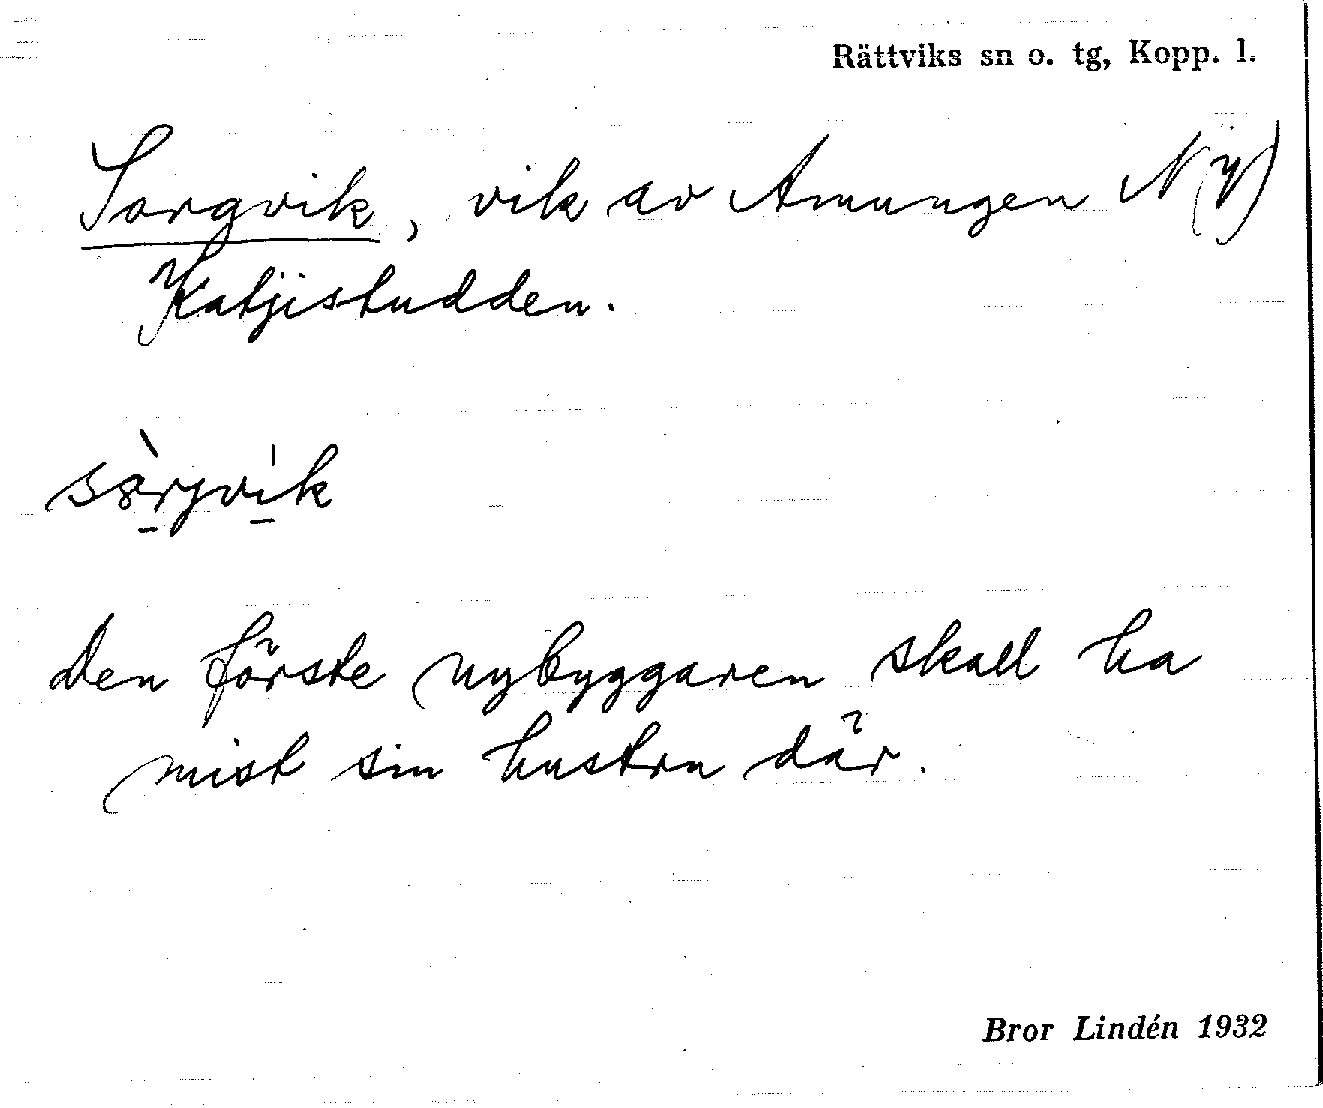 Rättviks sn o. tg, Kopp. l.
Sorgvik, vik av Amungen N
Katjistudden.
den förste nybyggaren skall ha
mist sin hustru där.
Bror Lindén 1932